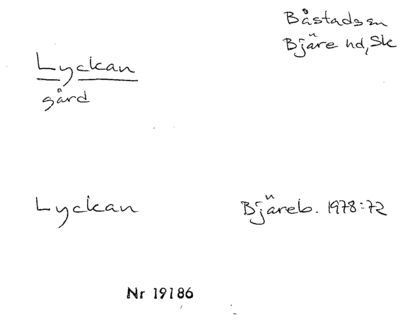 Båstads sn
Bjäre hd, Sk
Lyckan
gård
Lyckan Bjäreb. 1978:72
Nr 19186